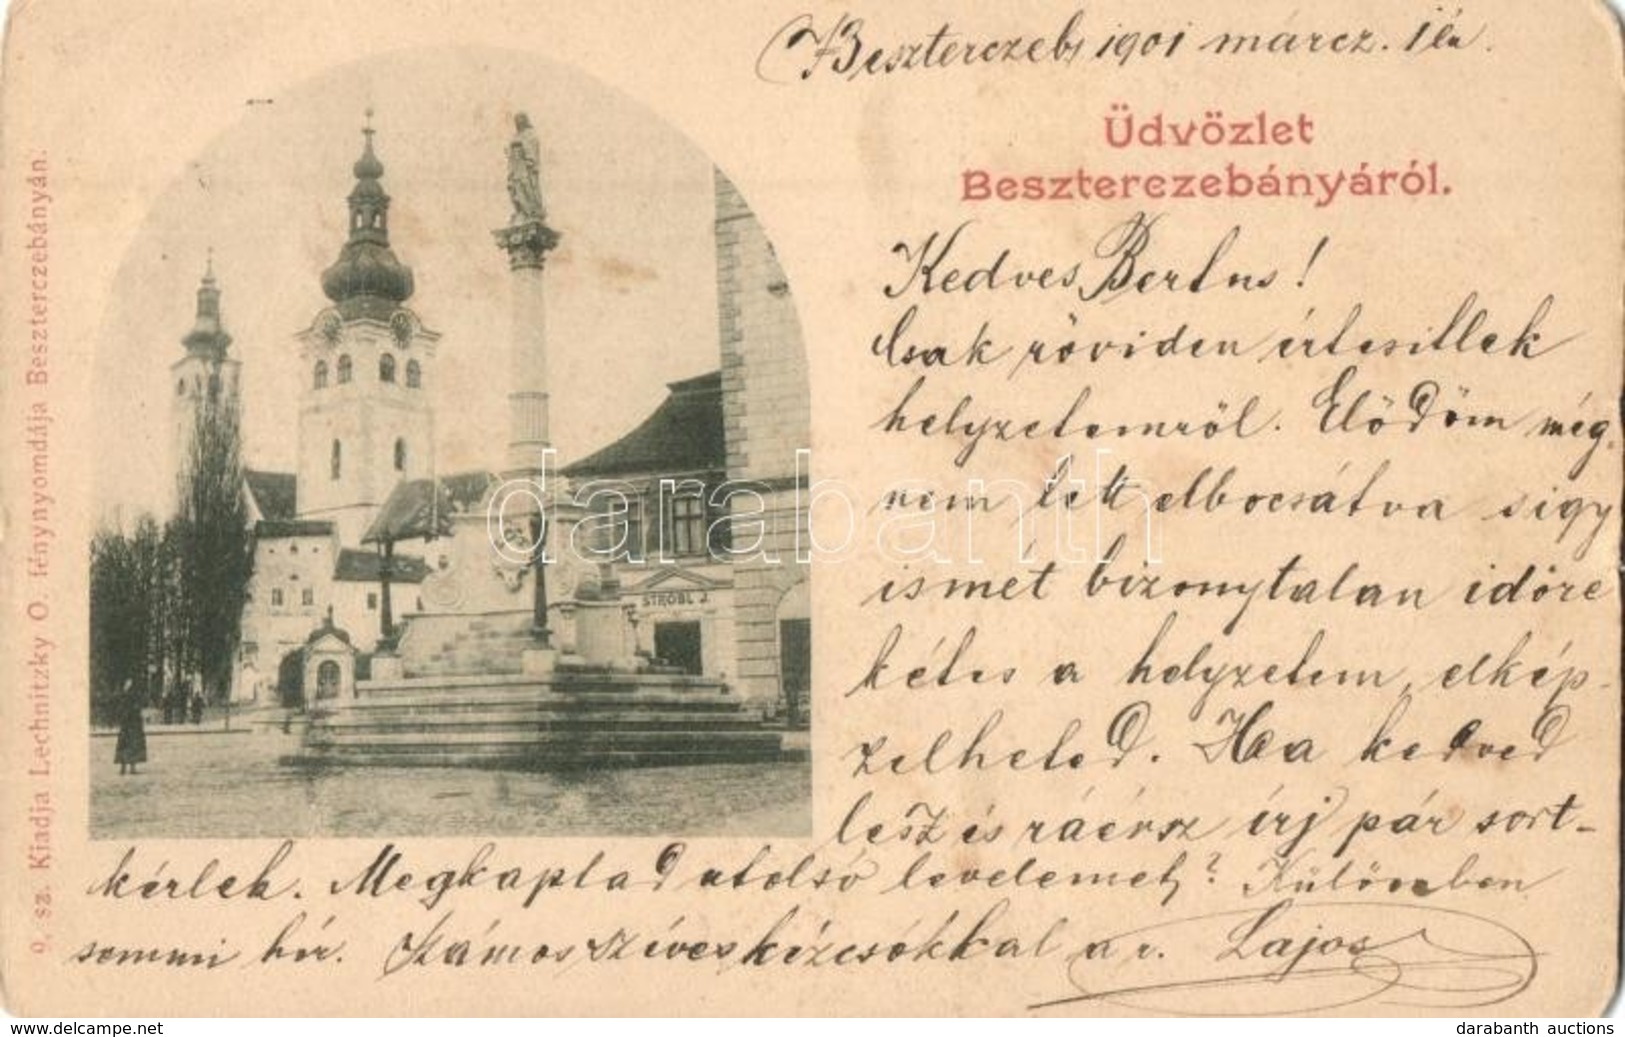 Beszterczeb, 1901 márcz. 1én.
Üdvözlet
Beszterczebányáról.
Kedves Bertus!
Csak röviden értesitlek
helyzetemről. Elődöm még
nem lett elbocsátva s igy
ismét bizonytalan időre
kétes a helyzetem, elkép-
zelheted. Ha kedved
lesz és ráérsz írj pár sort-
kérlek. Megkaptad utolsó levelemet? Különben
semmi hír. Számos szíves kézcsókkal a r. Lajos
STROBL J.
9. sz. Kiadja Lechnitzky O. fénynyomdája Beszterczebányán.
darabanth
www.delcampe.net
darabanth auctions